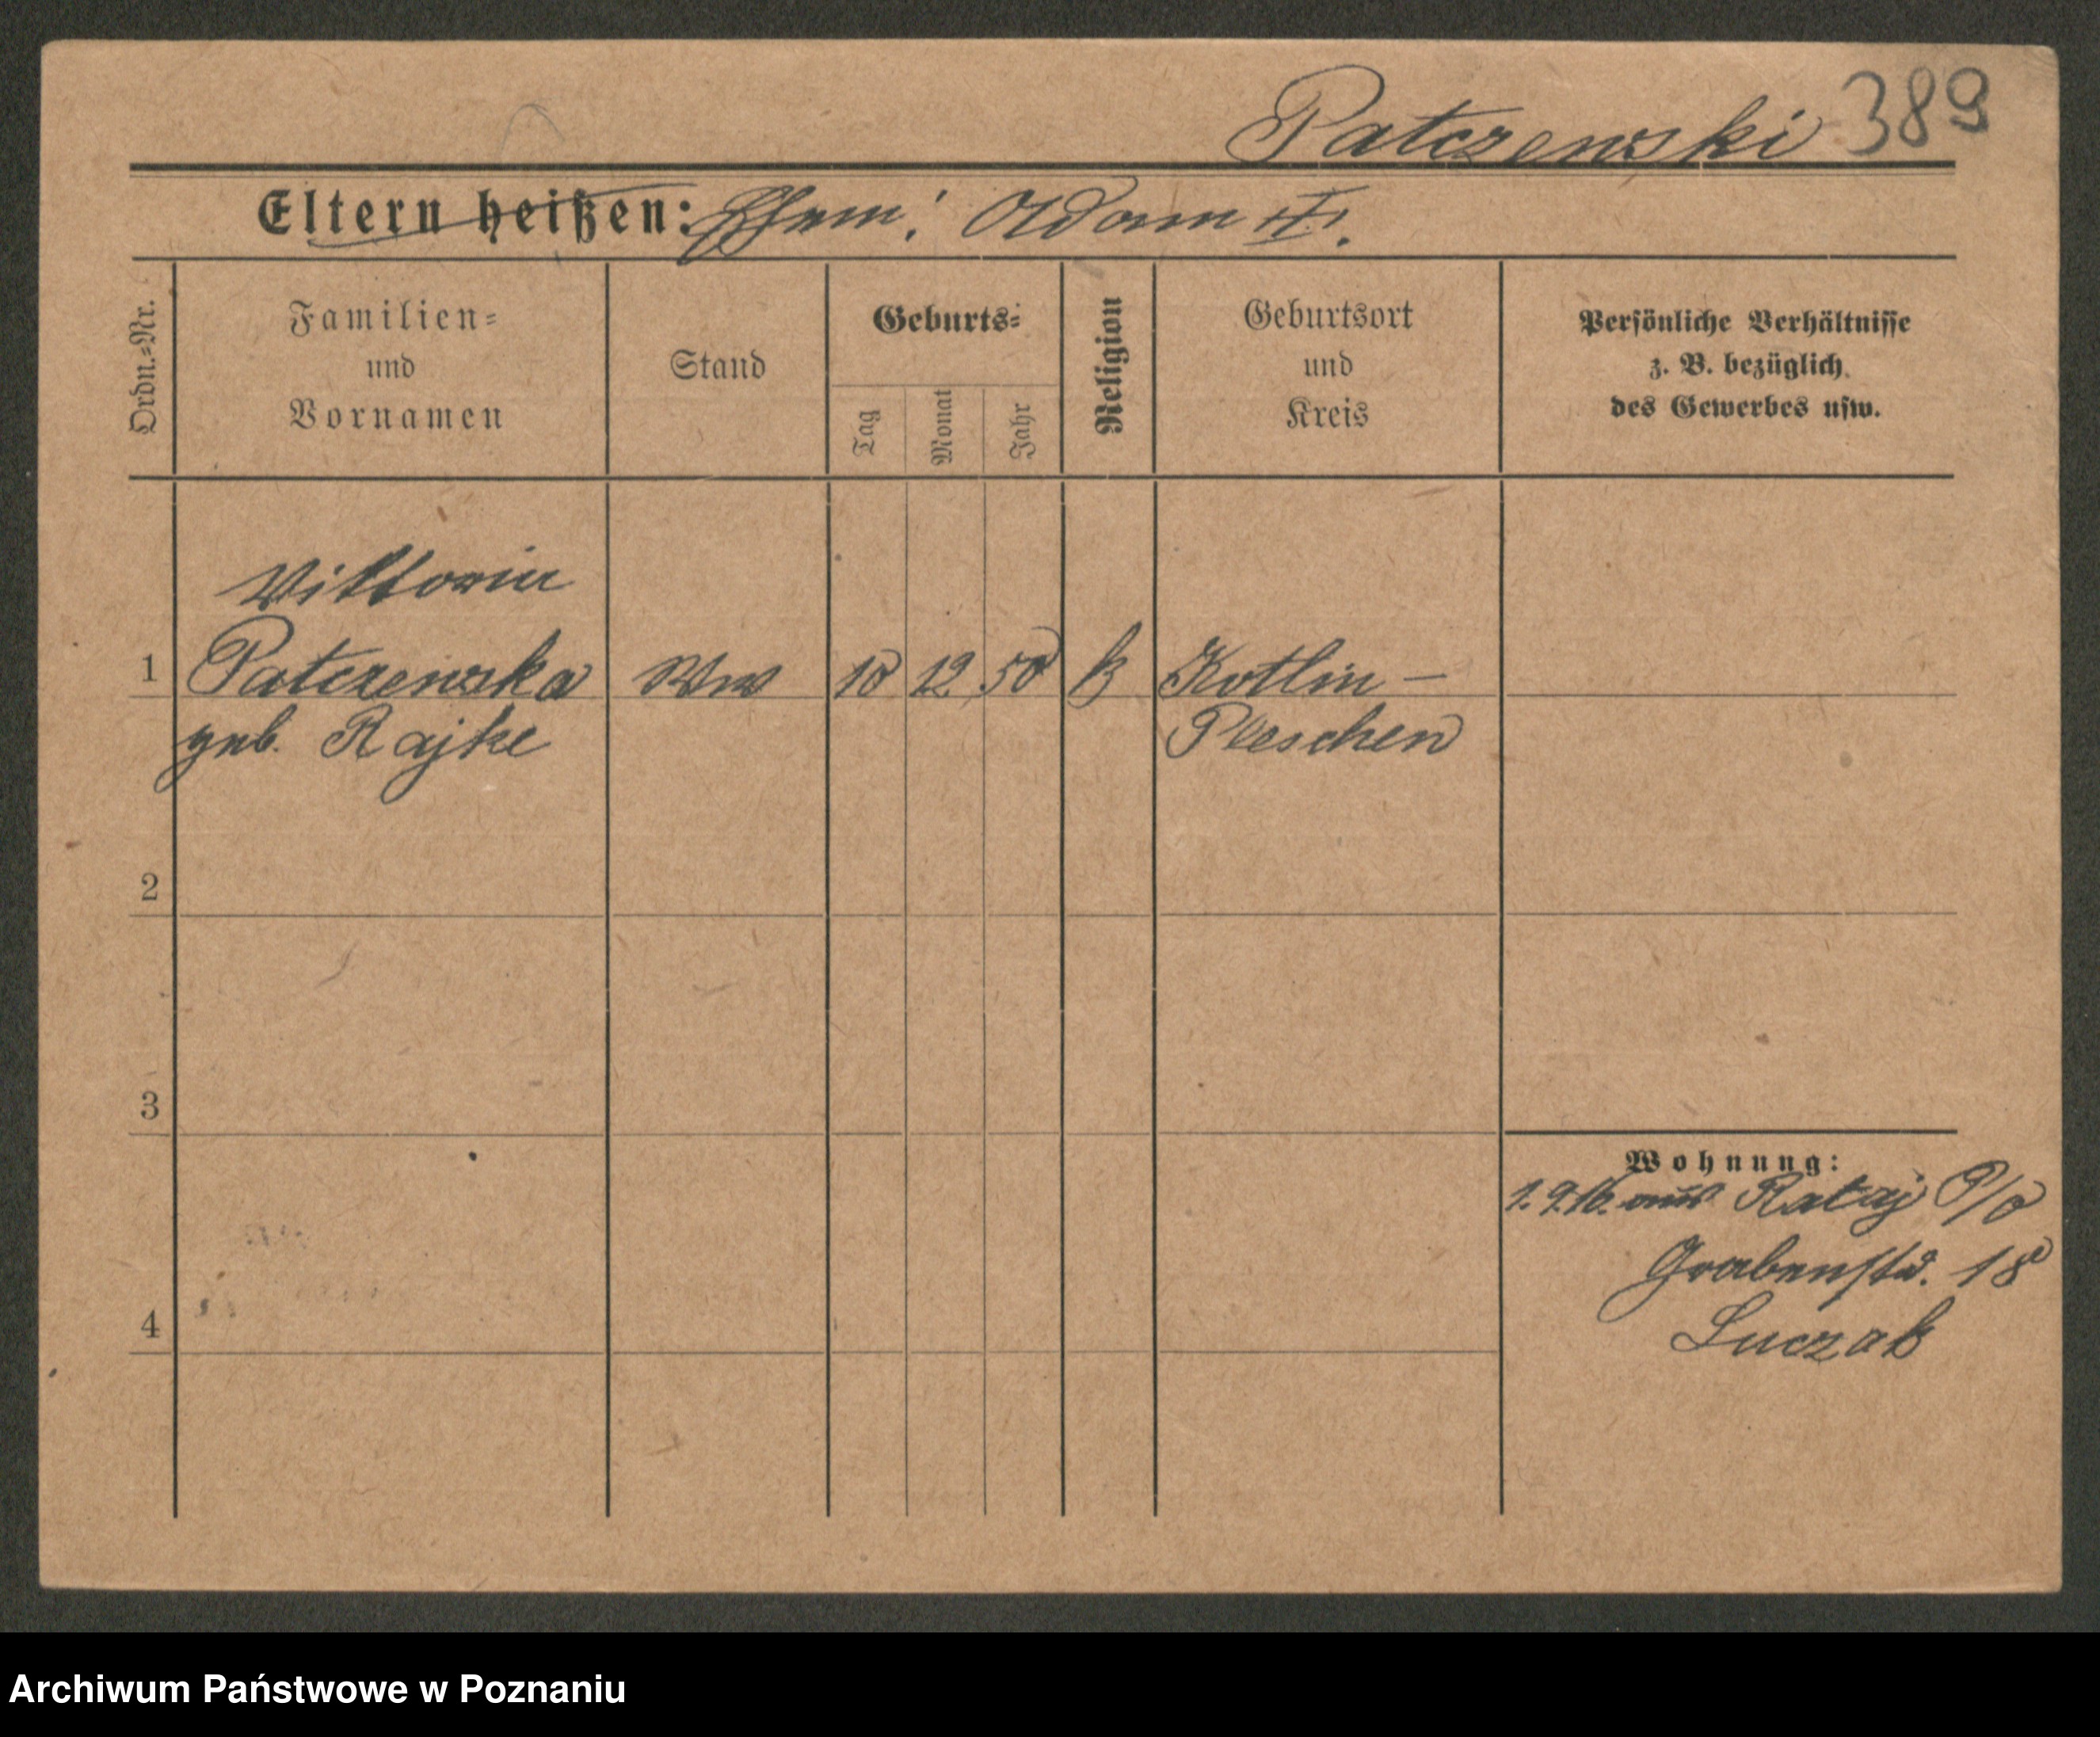 Patczenski 389
Eltern heißen: Ehem: Adam II.
Ordn.-Nr.
Familien-
und
Vornamen
Stand
Geburts-
Tag
Monat
Jahr
Religion
Geburtsort
und
Kreis
Persönliche Verhältnisse
z. B. bezüglich
des Gewerbes usw.
Viktoria
1 Patczenska Ww 10 12 50 k Kotlin -
geb. Rajke Pleschen
2
3
Wohnung:
1.9.16. aus Rataj P/O
Grabenstr. 18
4 Luczak
Archiwum Państwowe w Poznaniu